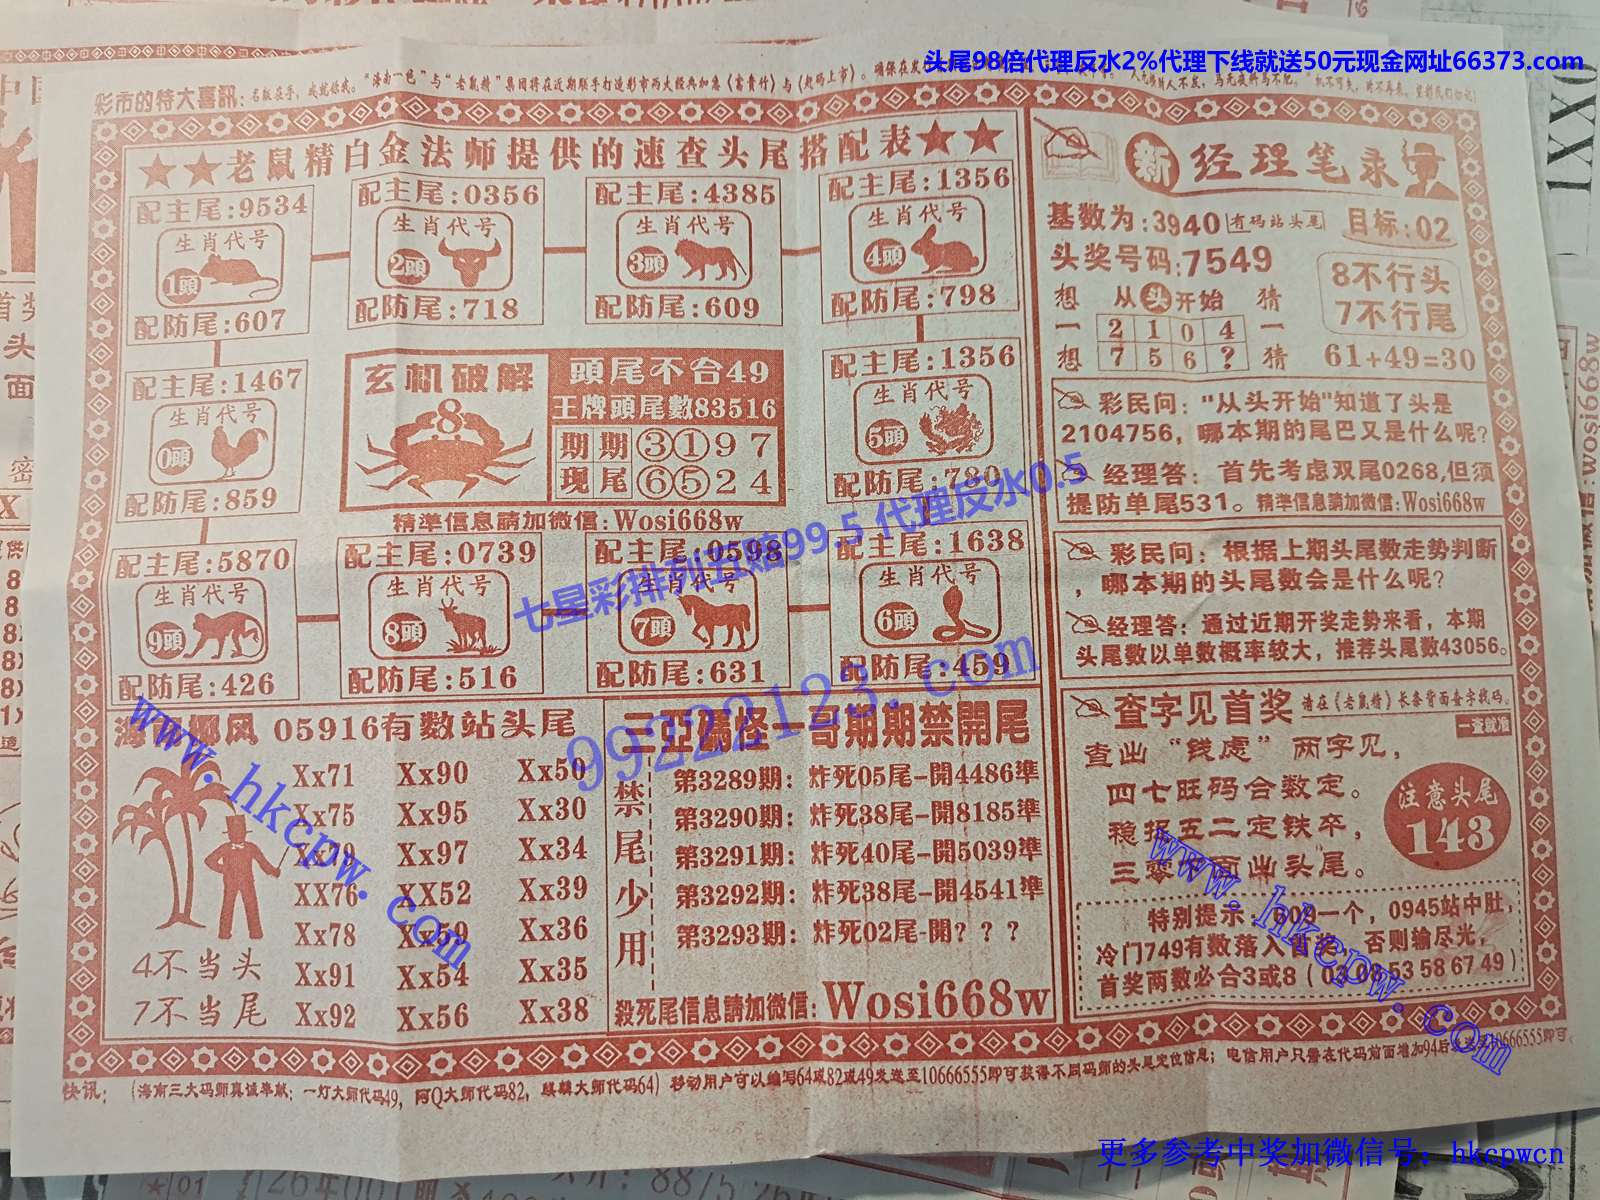 头尾98倍代理反水2%代理下线就送50元现金网址66373.com
彩市的特大喜訊：名版在手，成就你我。“海南一色”与“老鼠精”集团将在近期联手打造彩市两大经典加急《富貴竹》与《
★★老鼠精白金法师提供的速查头尾搭配表★★
配主尾:9534
生肖代号
1頭
配防尾:607
配主尾:0356
生肖代号
2頭
配防尾:718
配主尾:4385
生肖代号
3頭
配防尾:609
配主尾:1356
生肖代号
4頭
配防尾:798
配主尾:1467
生肖代号
0頭
配防尾:859
玄机破解
8
頭尾不合49
王牌頭尾數83516
期期③①97
現尾⑥⑤24
精準信息請加微信:Wosi668w
配主尾:1356
生肖代号
5頭
配防尾:780
配主尾:5870
生肖代号
9頭
配防尾:426
配主尾:0739
生肖代号
8頭
配防尾:516
配主尾:0598
生肖代号
7頭
配防尾:631
配主尾:1638
生肖代号
6頭
配防尾:459
七星彩排列五赔99.5 代理反水0.5
99222123.com
海南椰风 05916有数站头尾
Xx71 Xx90 Xx50
Xx75 Xx95 Xx30
Xx79 Xx97 Xx34
XX76 XX52 Xx39
Xx78 Xx59 Xx36
Xx91 Xx54 Xx35
Xx92 Xx56 Xx38
4不当头
7不当尾
www.hkcpw.com
三亞碼怪一哥期期禁開尾
禁尾少用
第3289期：炸死05尾-開4486準
第3290期：炸死38尾-開8185準
第3291期：炸死40尾-開5039準
第3292期：炸死38尾-開4541準
第3293期：炸死02尾-開? ? ?
殺死尾信息請加微信:Wosi668w
新经理笔录
基数为:3940 有码站头尾 目标:02
头奖号码:7549
8不行头
7不行尾
想 从头开始 猜
一 2 1 0 4 一
想 7 5 6 ? 猜
61+49=30
彩民问："从头开始"知道了头是
2104756，哪本期的尾巴又是什么呢?
经理答：首先考虑双尾0268,但须
提防单尾531。精準信息請加微信:Wosi668w
彩民问：根据上期头尾数走势判断
，哪本期的头尾数会是什么呢?
经理答：通过近期开奖走势来看，本期
头尾数以单数概率较大，推荐头尾数43056。
查字见首奖 请在《老鼠精》长条背面查字找码。
一查就准
查出“钱虑”两字见，
四七旺码合数定。
稳报五二定铁卒，
三零 面出头尾。
注意头尾
143
特别提示：609一个，0945站中肚，
冷门749有数落入首奖，否则输尽光，
首奖两数必合3或8（03 08 53 58 67 49）
www.hkcpw.com
快讯：（海南三大码师真诚奉献：一灯大师代码49，阿Q大师代码82，麒麟大师代码64）移动用户可以编写64或82或49发送至10666555即可获得不同码师的头尾定位信息；电信用户只需在代码前面增加94后发送至10666555即可。
更多参考中奖加微信号：hkcpwcn